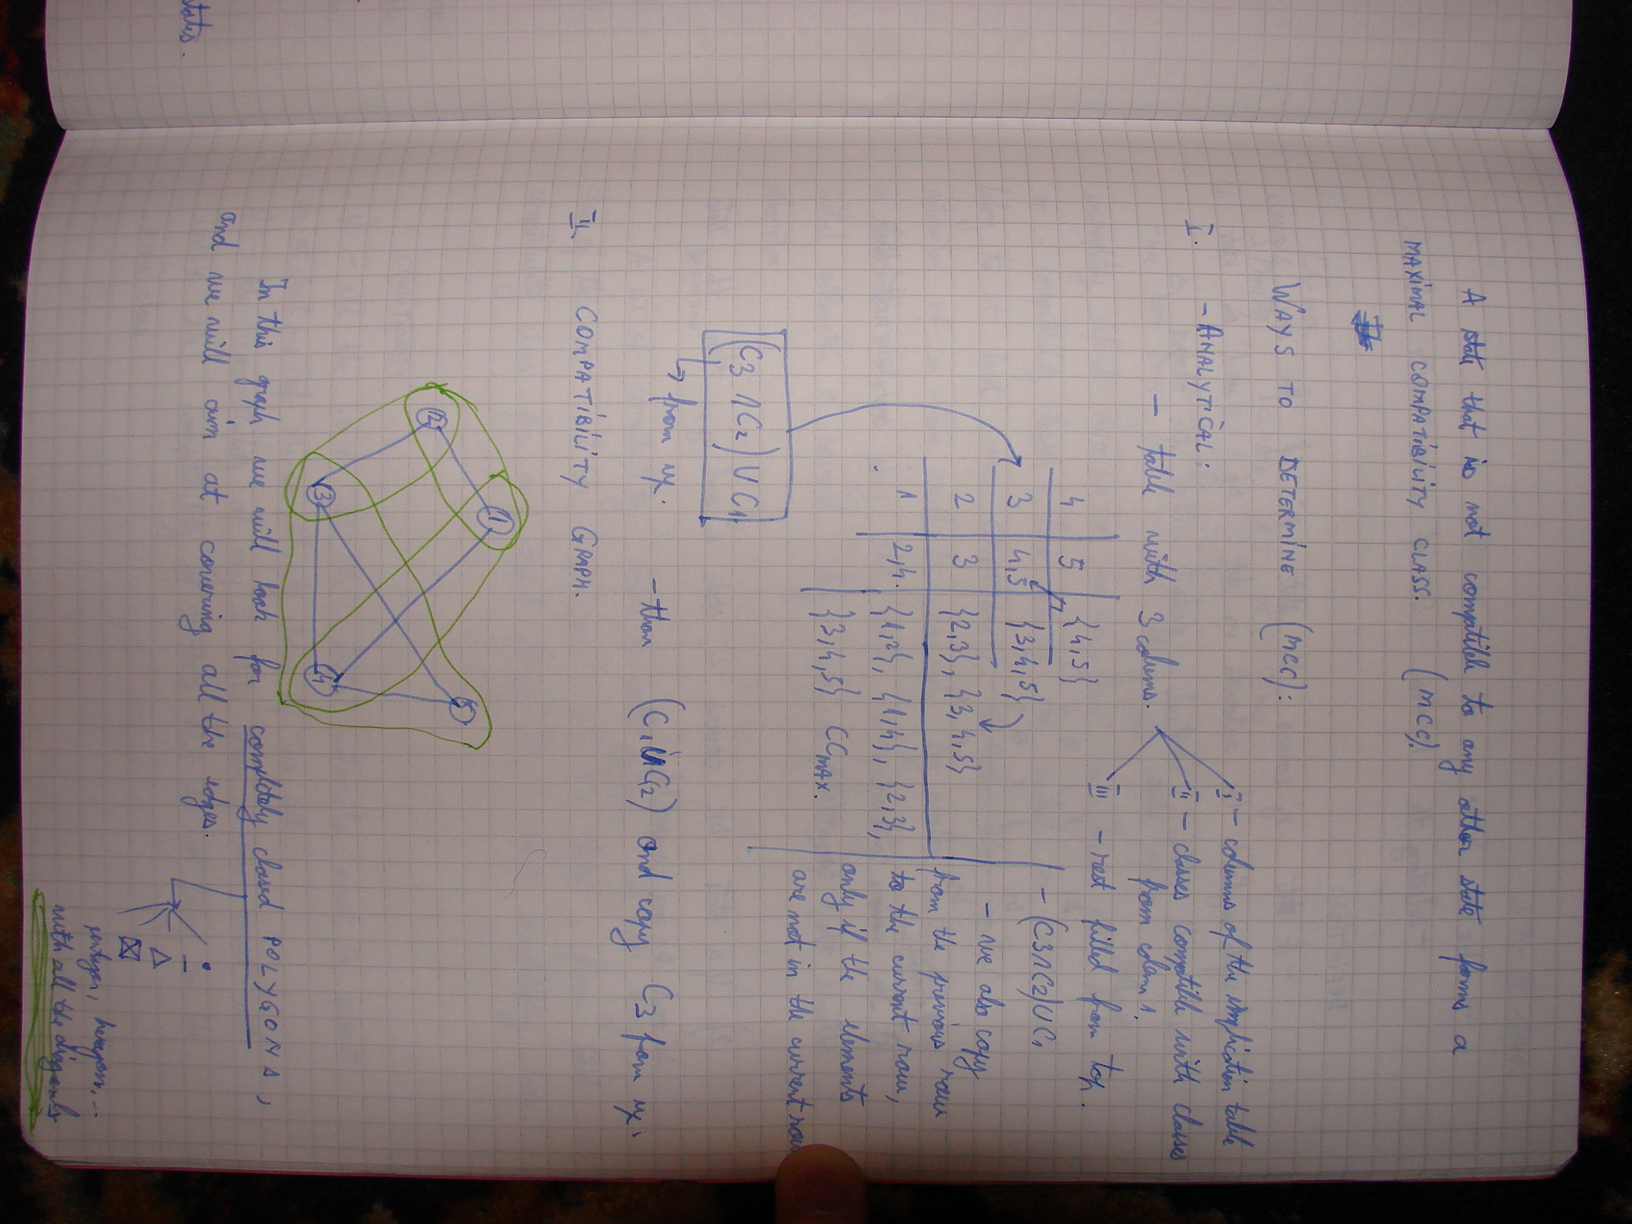 states.
A state that is not compatible to any other state forms a
MAXIMAL COMPATIBILITY CLASS. (mcc).
WAYS TO DETERMINE (mcc):
I. - ANALYTICAL:
- table with 3 columns.
I - columns of the implication table
II - classes compatible with classes
from column 1.
III - rest filled from top.
4 5 {4,5}
3 4,5 {3,4,5}
2 3 {2,3}, {3,4,5}
1 2,4. {1,2}, {1,4}, {2,3},
{3,4,5} CCMAX.
- (C3∩C2)UC1
- we also copy
from the previous row
to the current row,
only if the elements
are not in the current row
(C3∩C2)UC1
↳ from ux.
- then (C1∩C2) and copy C3 from ux.
II. COMPATIBILITY GRAPH.
2
1
3
4
5
In this graph we will look for completely closed POLYGONS,
and we will aim at covering all the edges.
pentagon, hexagon,...
with all the diagonals